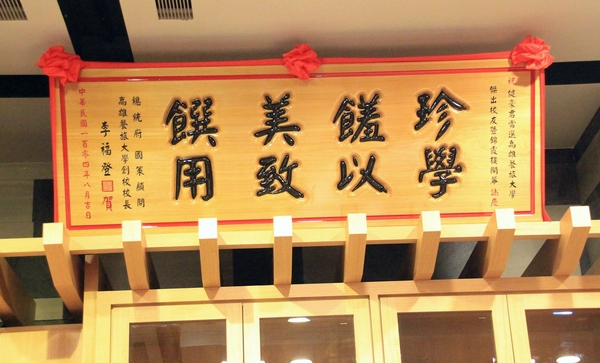 祝 健豪君當選高雄餐旅大學
傑出校友暨錦霞樓開幕 誌慶
珍饈美饌
學以致用
總統府 國策顧問
高雄餐旅大學創校校長
李福登 賀
中華民國一百零四年八月吉日